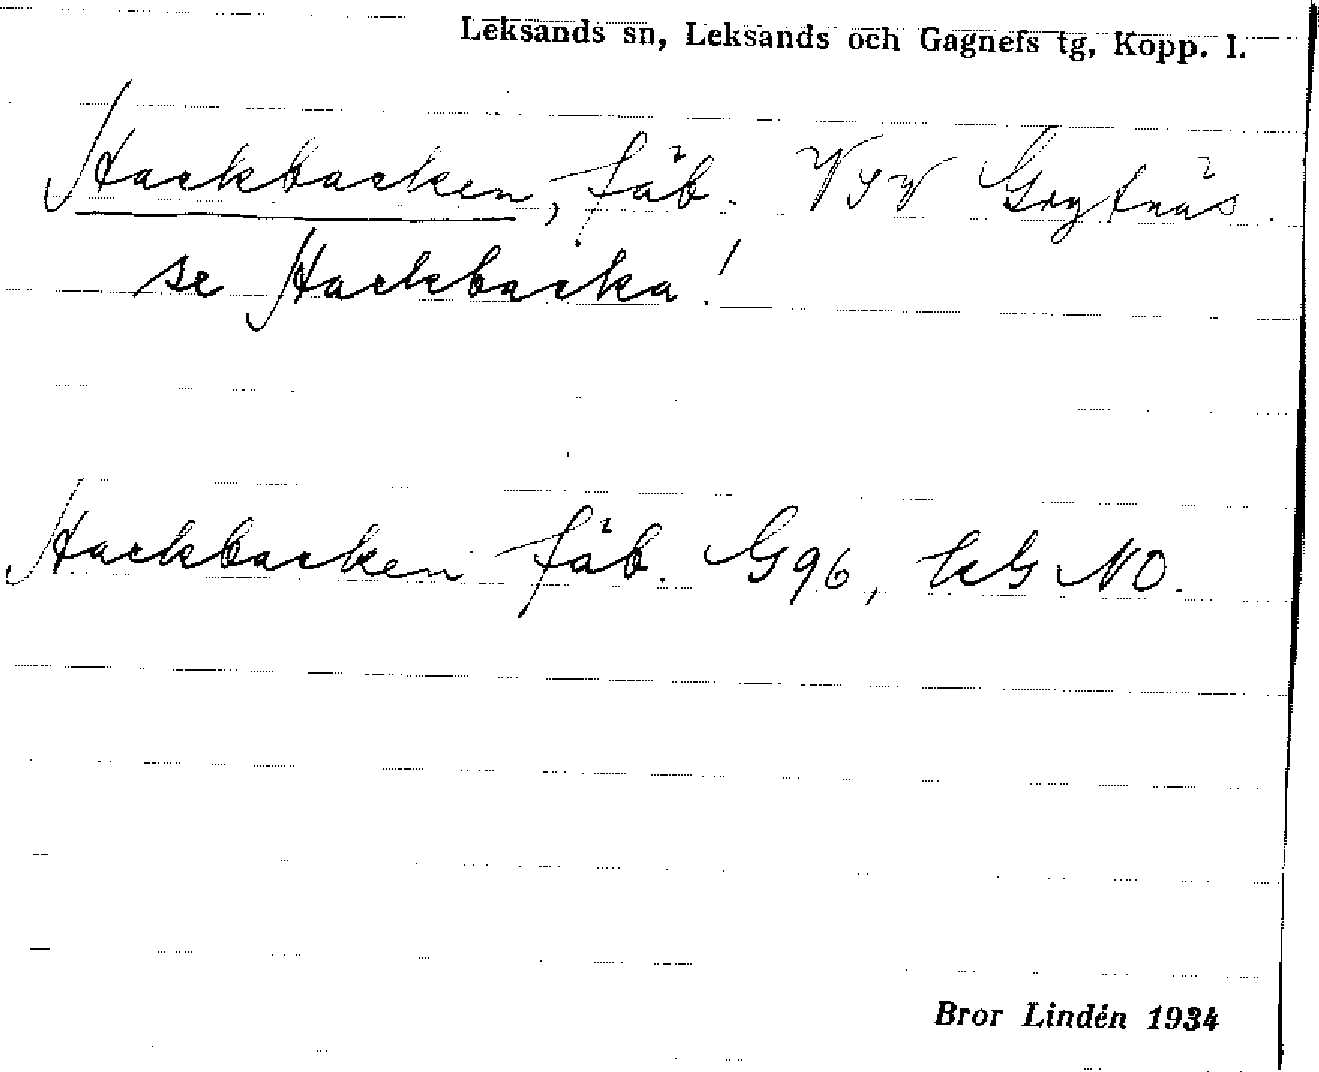 Leksands sn, Leksands och Gagnefs tg, Kopp. l.
Hackbacken, fäb. VSV Grytnäs.
se Hackbacka!
Hackbacken fäb. G96, kG NO.
Bror Lindén 1934